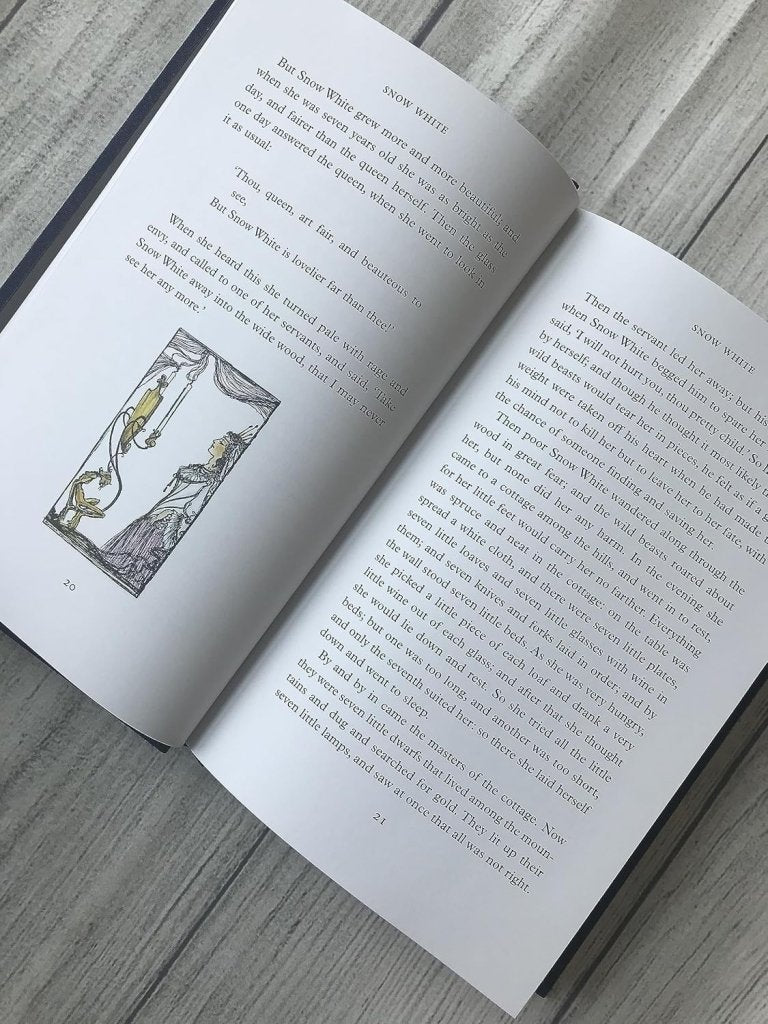 SNOW WHITE
But Snow White grew more and more beautiful; and
when she was seven years old she was as bright as the
day, and fairer than the queen herself. Then the glass
one day answered the queen, when she went to look in
it as usual:
'Thou, queen, art fair, and beauteous to
see,
But Snow White is lovelier far than thee!'
When she heard this she turned pale with rage and
envy, and called to one of her servants, and said, 'Take
Snow White away into the wide wood, that I may never
see her any more.'
20
SNOW WHITE
Then the servant led her away; but his
when Snow White begged him to spare her
said, 'I will not hurt you, thou pretty child.' So
by herself; and though he thought it most likely
wild beasts would tear her in pieces, he felt as if a
weight were taken off his heart when he had made
his mind not to kill her but to leave her to her fate, with
the chance of someone finding and saving her.
Then poor Snow White wandered along through the
wood in great fear; and the wild beasts roared about
her, but none did her any harm. In the evening she
came to a cottage among the hills, and went in to rest,
for her little feet would carry her no farther. Everything
was spruce and neat in the cottage: on the table was
spread a white cloth, and there were seven little plates,
seven little loaves and seven little glasses with wine in
them; and seven knives and forks laid in order, and by
the wall stood seven little beds. As she was very hungry,
she picked a little piece of each loaf and drank a very
little wine out of each glass; and after that she thought
she would lie down and rest. So she tried all the little
beds; but one was too long, and another was too short,
and only the seventh suited her: so there she laid herself
down and went to sleep.
By and by in came the masters of the cottage. Now
they were seven little dwarfs, that lived among the moun-
tains and dug and searched for gold. They lit up their
seven little lamps, and saw at once that all was not right.
21